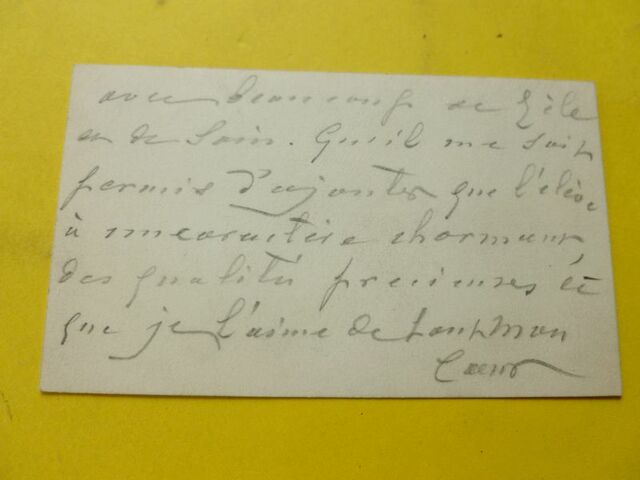 avec beaucoup de Zèle
et de Soin. Qu'il me soit
permis d'ajouter que l'élève
à un caractère charmant,
des qualités précieuses et
que je l'aime de tout mon
Cœur